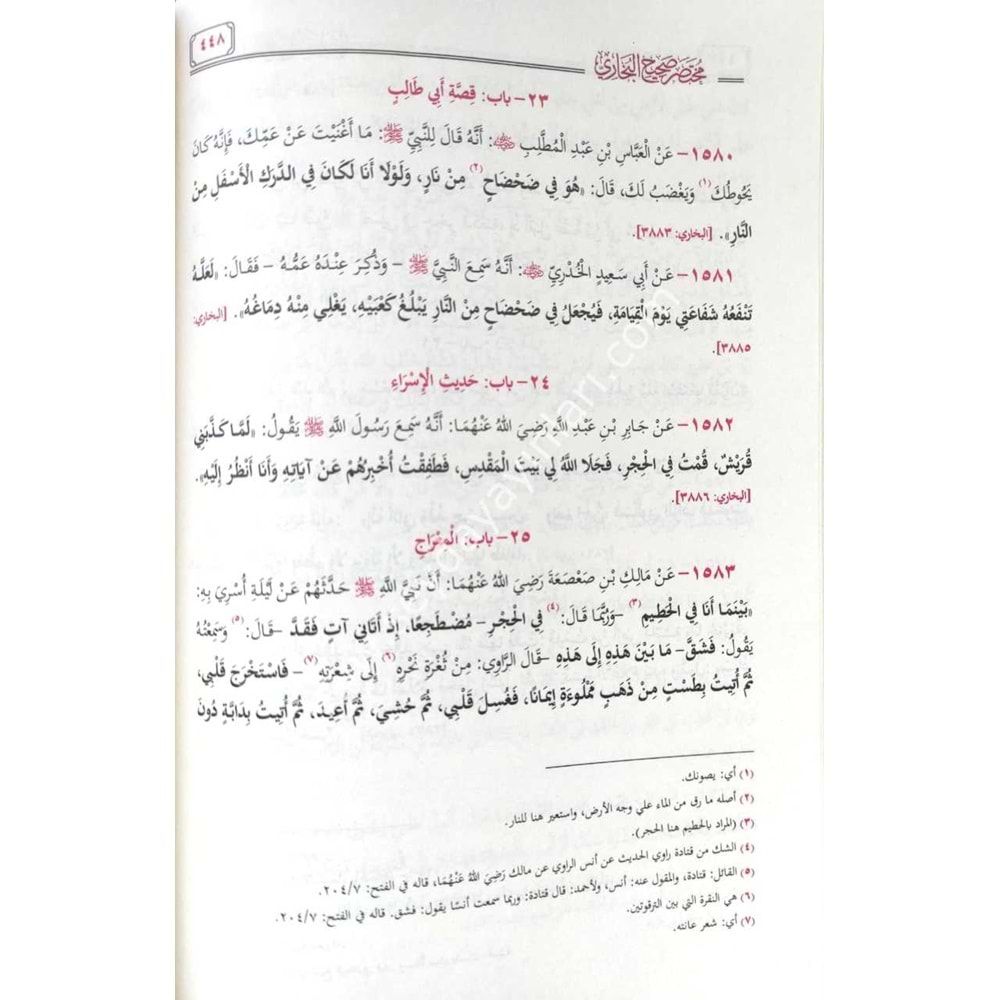 مُخْتَصَرُ صَحِيحِ البُخَارِيِّ
٤٤٨
٢٣- باب: قِصَّةِ أَبِي طَالِبٍ
١٥٨٠- عَنْ الْعَبَّاسِ بْنِ عَبْدِ الْمُطَّلِبِ ﷺ: أَنَّهُ قَالَ لِلنَّبِيِّ ﷺ: مَا أَغْنَيْتَ عَنْ عَمِّكَ، فَإِنَّهُ كَانَ
يَحُوطُكَ(١) وَيَغْضَبُ لَكَ، قَالَ: «هُوَ فِي ضَحْضَاحٍ(٢) مِنْ نَارٍ، وَلَوْلَا أَنَا لَكَانَ فِي الدَّرَكِ الْأَسْفَلِ مِنْ
النَّارِ». [البخاري: ٣٨٨٣].
١٥٨١- عَنْ أَبِي سَعِيدٍ الْخُدْرِيِّ: أَنَّهُ سَمِعَ النَّبِيَّ ﷺ - وَذُكِرَ عِنْدَهُ عَمُّهُ - فَقَالَ: «لَعَلَّهُ
تَنْفَعُهُ شَفَاعَتِي يَوْمَ الْقِيَامَةِ، فَيُجْعَلُ فِي ضَحْضَاحٍ مِنْ النَّارِ يَبْلُغُ كَعْبَيْهِ، يَغْلِي مِنْهُ دِمَاغُهُ». [البخاري:
٣٨٨٥].
٢٤- باب: حَدِيثِ الْإِسْرَاءِ
١٥٨٢- عَنْ جَابِرِ بْنِ عَبْدِ اللَّهِ رَضِيَ اللهُ عَنْهُمَا: أَنَّهُ سَمِعَ رَسُولَ اللَّهِ ﷺ يَقُولُ: «لَمَّا كَذَّبَنِي
قُرَيْشٌ، قُمْتُ فِي الْحِجْرِ، فَجَلَا اللَّهُ لِي بَيْتَ الْمَقْدِسِ، فَطَفِقْتُ أُخْبِرُهُمْ عَنْ آيَاتِهِ وَأَنَا أَنْظُرُ إِلَيْهِ».
[البخاري: ٣٨٨٦].
٢٥- باب: الْمِعْرَاجِ
١٥٨٣- عَنْ مَالِكِ بْنِ صَعْصَعَةَ رَضِيَ اللهُ عَنْهُمَا: أَنَّ نَبِيَّ اللَّهِ ﷺ حَدَّثَهُمْ عَنْ لَيْلَةِ أُسْرِيَ بِهِ:
«بَيْنَمَا أَنَا فِي الْحَطِيمِ(٣) -وَرُبَّمَا قَالَ:(٤) فِي الْحِجْرِ- مُضْطَجِعًا، إِذْ أَتَانِي آتٍ فَقَدَّ -قَالَ:(٥) وَسَمِعْتُهُ
يَقُولُ: فَشَقَّ- مَا بَيْنَ هَذِهِ إِلَى هَذِهِ -قَالَ الرَّاوِي: مِنْ ثُغْرَةِ نَحْرِهِ(٦) إِلَى شِعْرَتِهِ(٧) - فَاسْتَخْرَجَ قَلْبِي،
ثُمَّ أُتِيتُ بِطَسْتٍ مِنْ ذَهَبٍ مَمْلُوءَةٍ إِيمَانًا، فَغُسِلَ قَلْبِي، ثُمَّ حُشِيَ، ثُمَّ أُعِيدَ، ثُمَّ أُتِيتُ بِدَابَّةٍ دُونَ
(١) أي: يصونك.
(٢) أصله ما رق من الماء علي وجه الأرض، واستعير هنا للنار.
(٣) (المراد بالحطيم هنا الحجر).
(٤) الشك من قتادة راوي الحديث عن أنس الراوي عن مالك رَضِيَ اللهُ عَنْهُمَا، قاله في الفتح: ٢٠٤/٧.
(٥) القائل: قتادة، والمقول عنه: أنس، ولأحمد: قال قتادة: وربما سمعت أنسًا يقول: فشق. قاله في الفتح: ٢٠٤/٧.
(٦) هي النقرة التي بين الترقوتين.
(٧) أي: شعر عانته.